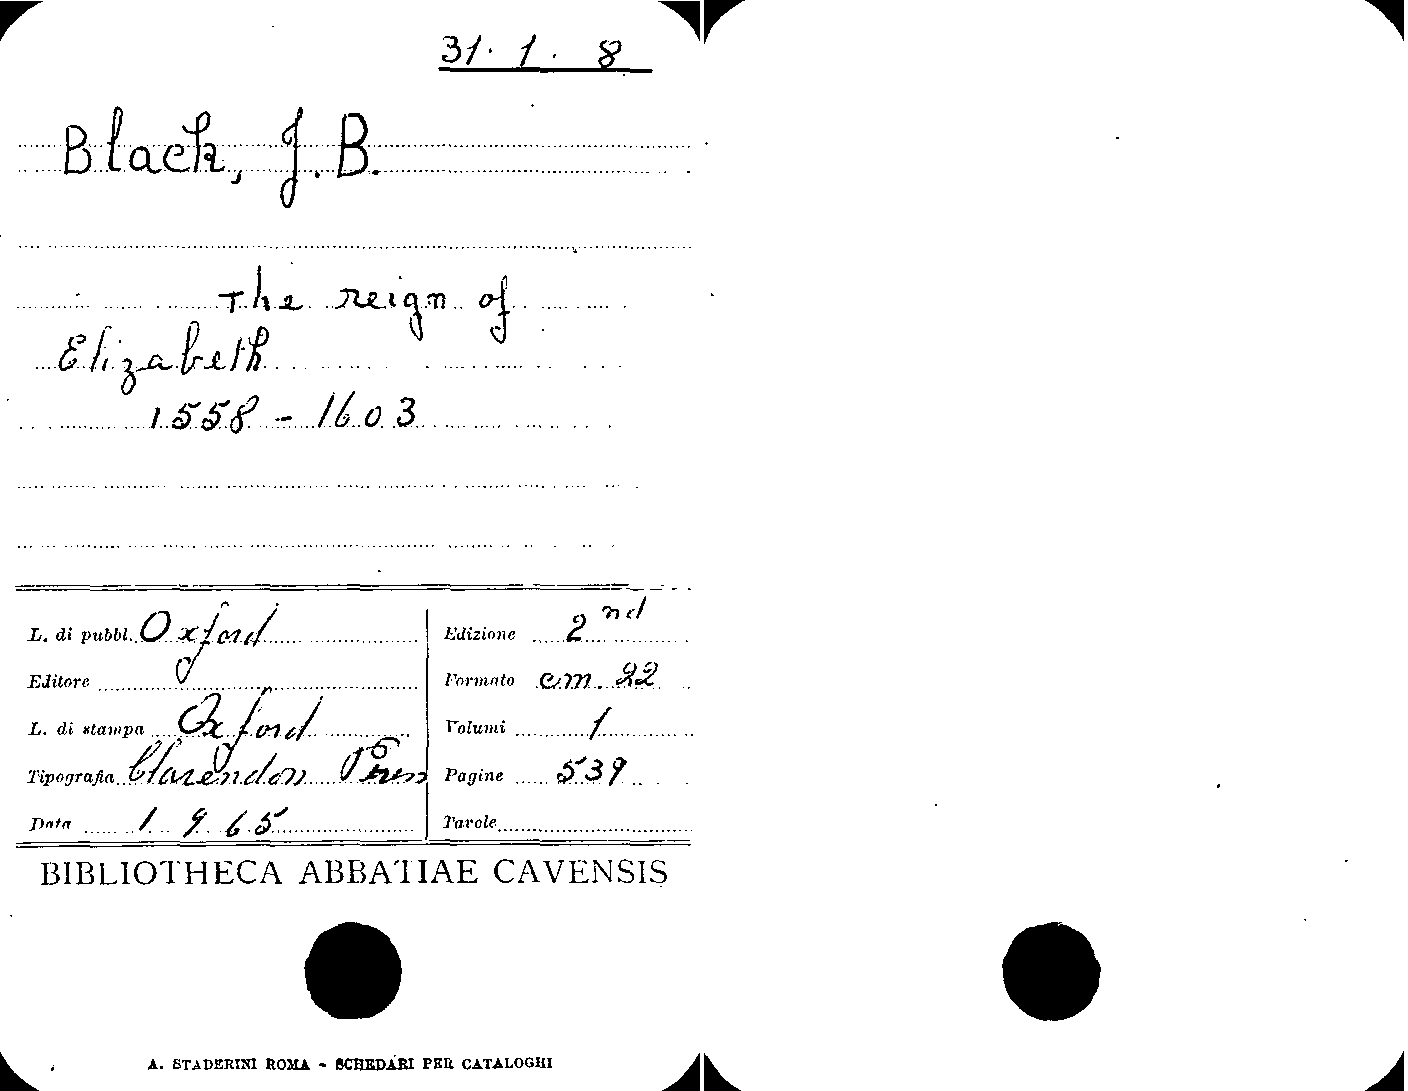 31. 1. 8
Black, J.B.
The reign of
Elizabeth
1558 - 1603
L. di pubbl. Oxford
Editore
L. di stampa Oxford
Tipografia Clarendon Press
Data 1965
Edizione 2nd
Formato cm. 22
Volumi 1
Pagine 539
Tavole
BIBLIOTHECA ABBATIAE CAVENSIS
A. STADERINI ROMA - SCHEDARI PER CATALOGHI